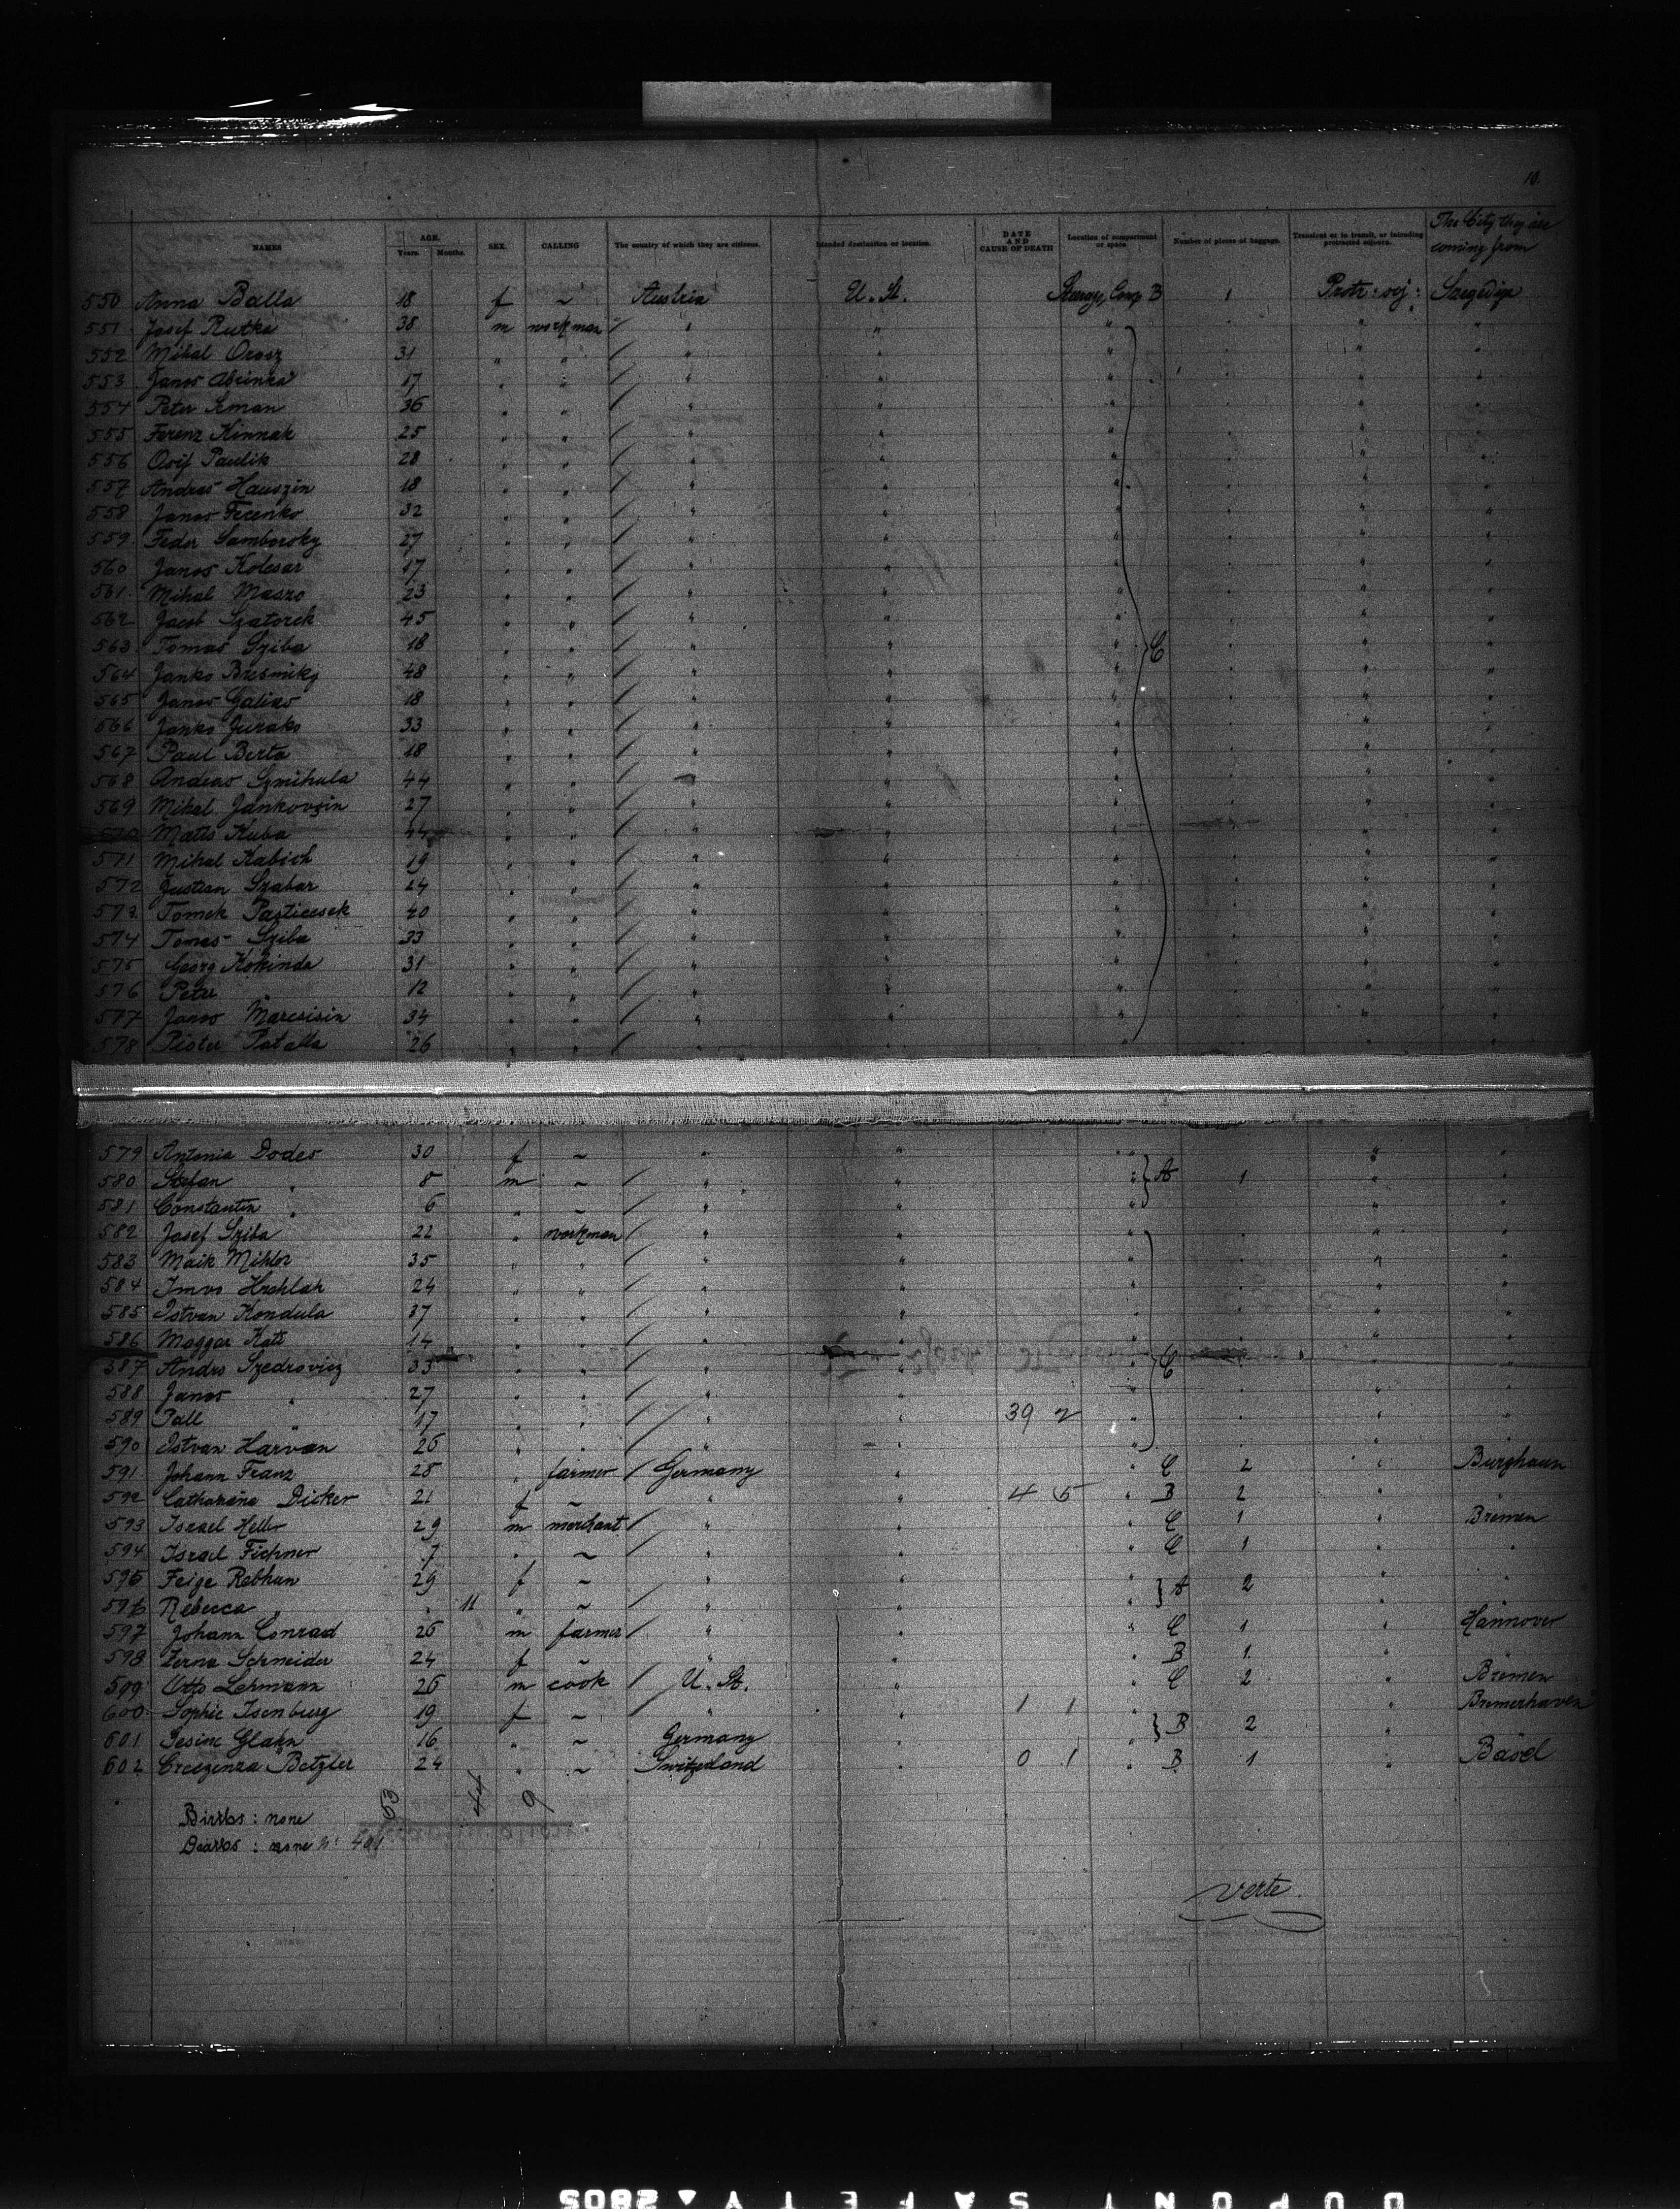 10.
NAMES AGE. Years. Months. SEX. CALLING The country of which they are citizens. Intended destination or location. DATE AND CAUSE OF DEATH Location of compartment or space. Number of pieces of baggage. Transient or in transit, or intending protracted sojourn. The City they are coming from
550 Anna Balla 18 f ~ Austria U. St. Comp B 1 Protr: soj:
551 Josef Rutka 38 m workman " " " " "
552 Mihal Orosz 31 " " " " " " "
553 Janos 17 " " " " " " "
554 Peter 36 " " " " " " "
555 Ferenz Kinnak 25 " " " " " " "
556 Paulik 28 " " " " " " "
557 Andras Hauszin 18 " " " " " " "
558 Janos Fecenko 32 " " " " " " "
559 Feder Samborsky 27 " " " " " " "
560 Janos Kolesar 17 " " " " " " "
561 Mihal Maszo 23 " " " " " " "
562 Jacob Szatorek 45 " " " " " " "
563 Tomas Sziba 18 " " " " " C " "
564 Janko 48 " " " " " " "
565 Janos 18 " " " " " " "
566 Janko Jurako 33 " " " " " " "
567 Paul Berta 18 " " " " " " "
568 Andras Szmihula 44 " " " " " " "
569 Mihal Jankovszin 27 " " " " " " "
570 Matis Kuba 44 " " " " " " "
571 Mihal Kabich 19 " " " " " " "
572 Szabar 24 " " " " " " "
573 Tomek 40 " " " " " " "
574 Tomas Sziba 33 " " " " " " "
575 Georg Kokinda 31 " " " " " " "
576 Peter " 12 " " " " " " "
577 Janos Marcsisin 34 " " " " " " "
578 Patalla 26 " " " " " " "
579 Antonia Dodes 30 f ~ " " " " "
580 Stefan " 8 m ~ " " " A 1 " "
581 Constantin " 6 " ~ " " " " "
582 Josef Sziba 22 " workman " " " " "
583 Maik Mihlor 35 " " " " " " "
584 24 " " " " " " "
585 Istvan Kondula 37 " " " " " " "
586 Maggar Kati 14 " " " " " " "
587 Andro Szedrovicz 33 " " " " " C " "
588 Janos " 27 " " " " " " "
589 Pall " 17 " " " " 39 2 " " "
590 Istvan Harvan 26 " " " " " " "
591 Johann Franz 28 " farmer Germany " " C 2 " Burghaun
592 Catharina Dicker 21 f ~ " " 4 5 " B 2 " "
593 Israel Heller 29 m merchant " " " C 1 " Bremen
594 Israel Fichner 7 " ~ " " " C 1 " "
595 Feige Rebhun 29 f ~ " " " A 2 " "
596 Rebecca " 11 " ~ " " " " "
597 Johann Conrad 26 m farmer " " " C 1 " Hannover
598 Schneider 24 f ~ " " " B 1 " "
599 Otto Lehmann 26 m cook U. St. " " C 2 " Bremen
600 Sophie Isenburg 19 f ~ " " 1 1 " B 2 " Bremerhaven
601 Gesine Glahn 16 " ~ Germany " " " "
602 Creszenza Betzler 24 " ~ Switzerland " 0 1 " B 1 " Basel
53 44 9
Births: none
Deaths: none
verte.
DUPONT SAFETY ▲ 2805